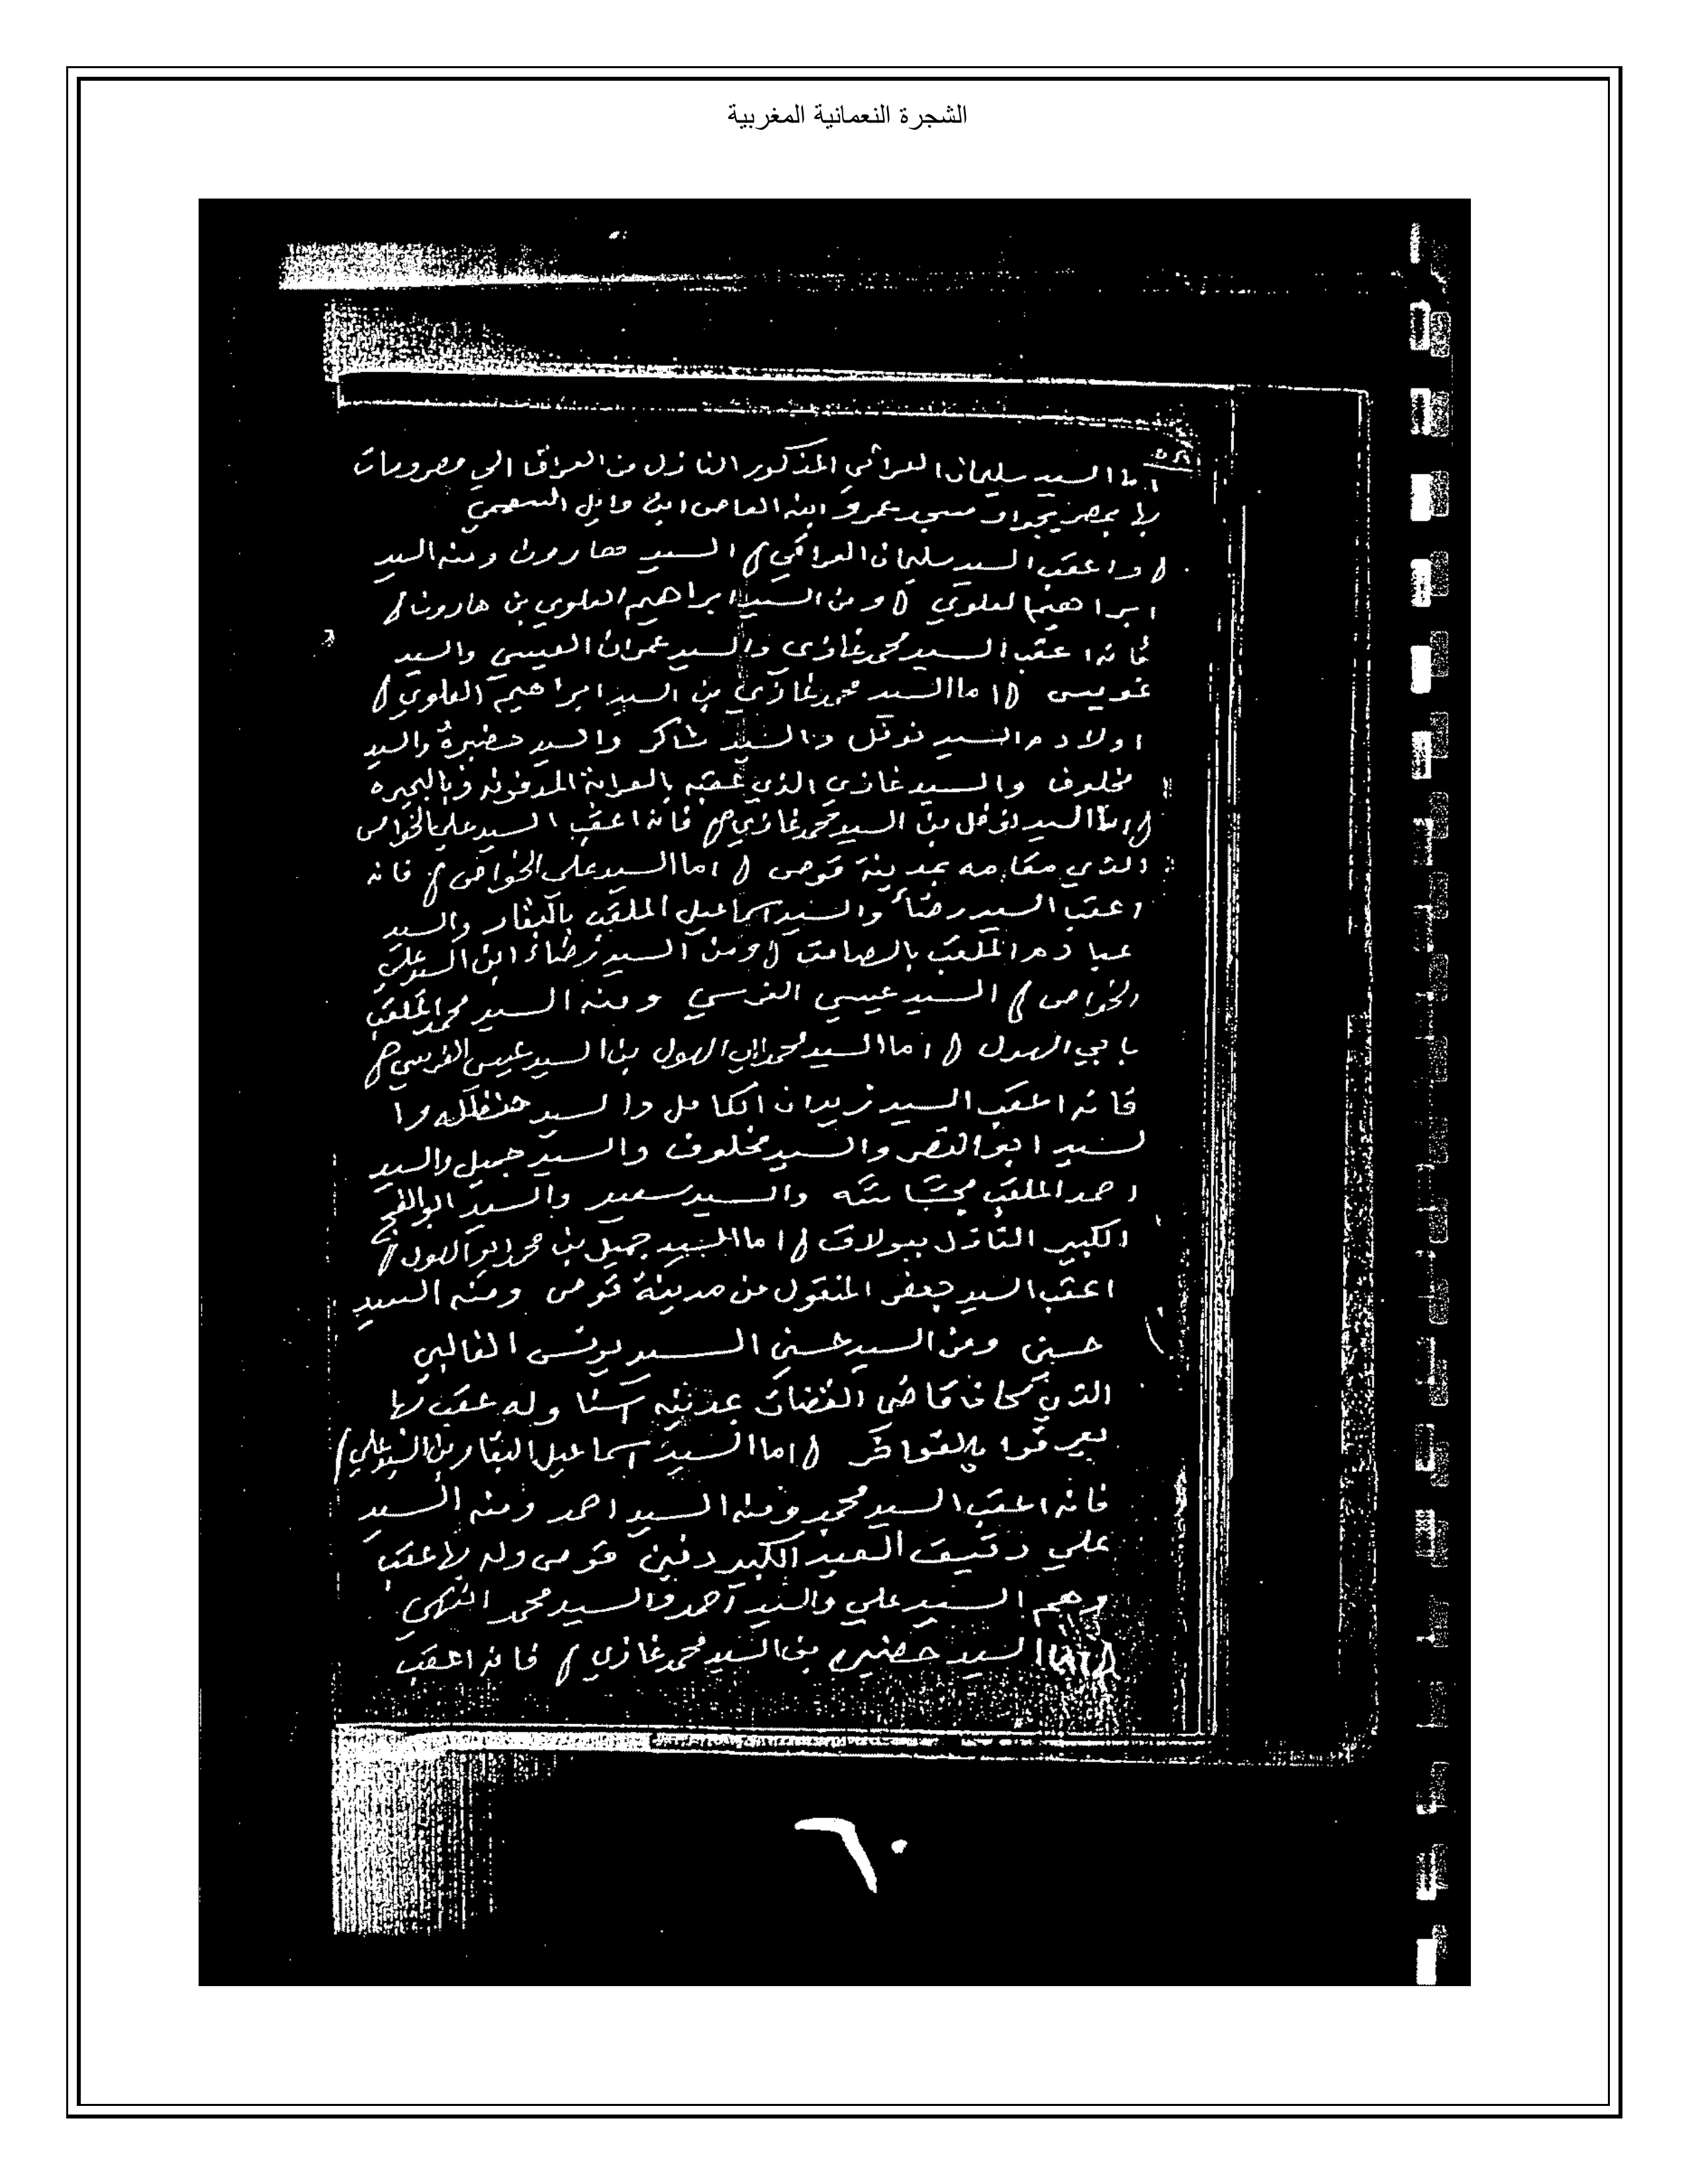 الشجرة النعمانية المغربية
اما السيد سليمان العراقي المذكور النازل من العراق الي مصر ومات
بها بمصر بجوار مسجد عمرو ابنه العاص ابن وايل السهمي
واعقب السيد سليمان العراقي السيد هارون ومنه السيد
ابراهيم العلوي ومن السيد ابراهيم العلوي بن هارون
فانه اعقب السيد محمد غازي والسيد عمران العيسي والسيد
غويسى اما السيد محمد غازي بن السيد ابراهيم العلوي
اولاده السيد نوفل والسيد شاكر والسيد حضيرة والسيد
مخلوف والسيد غازي الذي عقبه بالعرابة المدفونه وبالبحيره
اما السيد نوفل بن السيد محمد غازي فانه اعقب السيد علي الخواص
الذي مقامه بمدينة قوص اما السيد علي الخواص فانه
اعقب السيد رضاء والسيد اسماعيل الملقب بالبقار والسيد
عباده الملقب بالصامت ومن السيد رضاء ابن السيد علي
الخواص السيد عيسي الفرسي ومنه السيد محمد الملقب
بابي الهول اما السيد محمد ابي الهول بن السيد عيسى الفرسي
فانه اعقب السيد زيدان الكامل والسيد حنظله وا
لسيد ابو النصر والسيد مخلوف والسيد جميل والسيد
احمد الملقب والسيد سعيد والسيد ابوالفتح
الكبير النازل ببولاق اما السيد جميل بن محمد ابو الهول
اعقب السيد جعفر المنقول من مدينة قوص ومنه السيد
حسين ومن السيد حسين السيد يونس الغالبي
الذي كان قاضي القضات بمدينه اسنا وله عقب بها
يعرفوا اما السيد اسماعيل البقار بن السيد علي
فانه اعقب السيد محمد ومنه السيد احمد ومنه السيد
علي دقيق العيد الكبير دفين قوص وله بها عقب
وهم السيد علي والسيد احمد والسيد محمد
اما السيد حضيره بن السيد محمد غازي فانه اعقب
٦٠